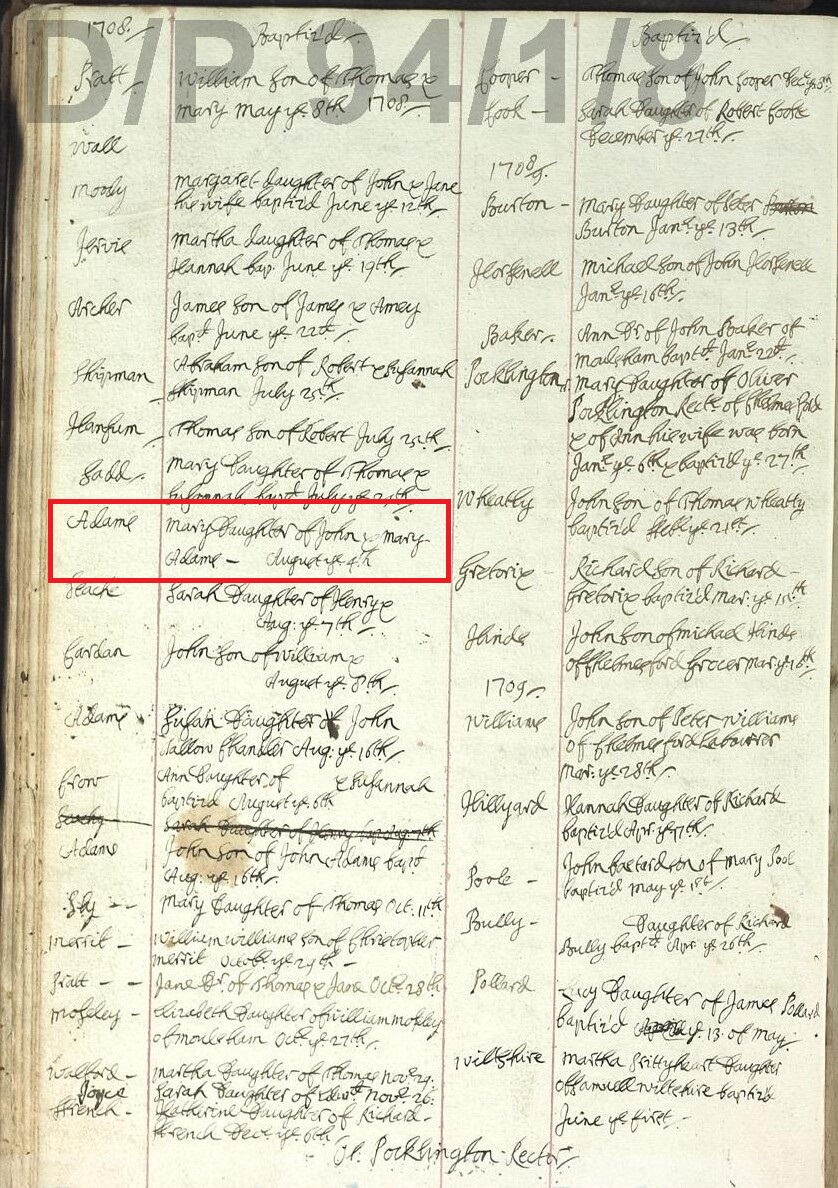 D/P 94/1/8
1708
Baptiz'd
Pratt
William Son of Thomas &
Mary May ye. 8th 1708
Wall
Moody
Margaret daughter of John & Jane
his wife baptiz'd June ye 12th
Jervis
Martha daughter of Thomas &
Hannah bap. June ye. 19th
Archer
James Son of James & Amey
bapt'd June ye. 22d
Shipman
Abraham Son of Robert & Susannah
Shipman July 25th
Hansum
Thomas Son of Robert July 25th
Sadd
Mary Daughter of Thomas &
Susannah bapt'd July ye 25th
Adams
Mary Daughter of John & Mary
Adams - August ye 4th
Sarah Daughter of Henry &
Aug: ye 7th
Cardan
John Son of William &
August ye. 8th
Adams
Susan Daughter of John
Tallow Chandler Aug: ye 16th
Crow
Ann Daughter of & Susannah
baptiz'd August ye. 6th
Sarah Daughter of Henry bap Aug. 7th
Adams
John Son of John Adams bapt'd
Aug: ye. 16th
Sly - -
Mary Daughter of Thomas Oct. 11th
Merrit -
William Williams Son of Christopher
Merrit Octobr. ye 24th
Pratt - -
Jane Dr. of Thomas & Jane Octr. 28th
Moseley -
Elizabeth Daughter of William Moseley
of Moulsham Octr. ye 27th
Walford -
Martha Daughter of Thomas Novr.
Joyce
Sarah Daughter of Novr. 26.
French -
Katherine Daughter of Richard
French Decr. ye. 6th
Baptiz'd
Cooper -
Thomas Son of John Cooper Decr.
Cook -
Sarah Daughter of Robert Cooke
December ye. 27th
1708/9
Burton -
Mary Daughter of Peter Burton
Burton Janr. ye. 13th
Horsenell
Michael Son of John Horsenell
Janr. ye 16th
Baker
Ann Dr. of John Baker of
Moulsham bapt'd Janr. 22d
Pocklington
Mary Daughter of Oliver
Pocklington Rectr. of Chelmesford
& of Ann his wife was born
Janr. ye 6th & baptiz'd ye. 27th
Wheatly
John Son of Thomas Wheatly
baptiz'd Feb: ye. 21st
Gretorix
Richard Son of Richard
Gretorix baptiz'd Mar: ye.
Hinds
John Son of Michael Hinds
of Chelmesford Grocer Mar ye 16th
1709
Williams
John Son of Peter Williams
of Chelmesford Labourer
Mar: ye 28th
Hillyard
Hannah Daughter of Richard
baptiz'd Apr. ye 17th
Poole -
John bastard son of Mary Pool
baptiz'd May ye. 1st
Bully -
Daughter of Richard
Bully bapt'd Apr. ye 26th
Pollard
Lucy Daughter of James Pollard
baptiz'd April ye 13. of May
Wiltshire
Martha Prittyheart Daughter
of Samuell Wiltshire baptiz'd
June ye first -
Ol. Pocklington Rector